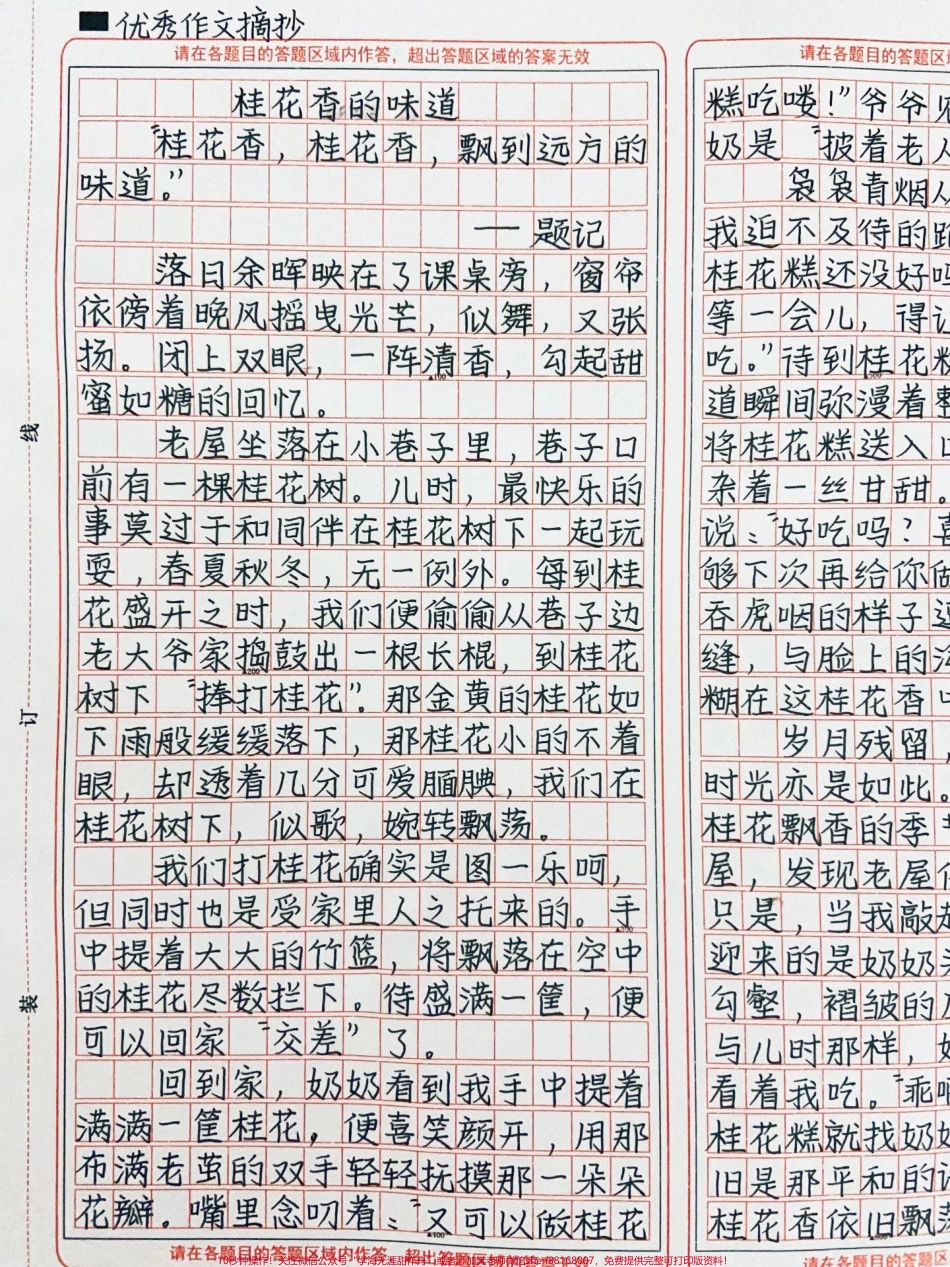 优秀作文摘抄
请在各题目的答题区域内作答，超出答题区域的答案无效
桂花香的味道
“桂花香，桂花香，飘到远方的
味道。”
——题记
落日余晖映在了课桌旁，窗帘
依傍着晚风摇曳光芒，似舞，又张
扬。闭上双眼，一阵清香，勾起甜
蜜如糖的回忆。
老屋坐落在小巷子里，巷子口
前有一棵桂花树。儿时，最快乐的
事莫过于和同伴在桂花树下一起玩
耍，春夏秋冬，无一例外。每到桂
花盛开之时，我们便偷偷从巷子边
老大爷家捣鼓出一根长棍，到桂花
树下“捧打桂花”。那金黄的桂花如
下雨般缓缓落下，那桂花小的不着
眼，却透着几分可爱腼腆，我们在
桂花树下，似歌，婉转飘荡。
我们打桂花确实是图一乐呵，
但同时也是受家里人之托来的。手
中提着大大的竹篮，将飘落在空中
的桂花尽数拦下。待盛满一筐，便
可以回家“交差”了。
回到家，奶奶看到我手中提着
满满一筐桂花，便喜笑颜开，用那
布满老茧的双手轻轻抚摸那一朵朵
花瓣。嘴里念叨着：“又可以做桂花
请在各题目的答题区域内作答，超出答题区域的答案无效
请在各题目的答题区域
糕吃喽！”爷爷
奶是“披着老
袅袅青烟
我迫不及待的
桂花糕还没好
等一会儿，得
吃。”待到桂花
道瞬间弥漫着
将桂花糕送入
杂着一丝甘甜。
说：“好吃吗？
够下次再给你
吞虎咽的样子
缝，与脸上的
糊在这桂花香
岁月残留，
时光亦是如此。
桂花飘香的季
屋，发现老屋
只是，当我敲
迎来的是奶奶
勾壑，褶皱的
与儿时那样，
看着我吃。“乖
桂花糕就找奶
旧是那平和的
桂花香依旧飘
请在各题目的答题
线
订
装